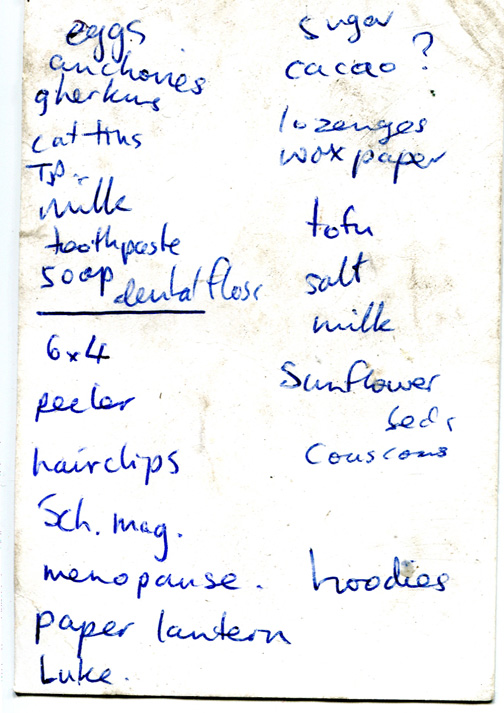 eggs
anchovies
gherkins
cat tins
T.P.
milk
toothpaste
soap
dental floss
6x4
peeler
hairclips
Sch. mag.
menopause.
paper lantern
Luke.
sugar
cacao ?
lozenges
wax paper
tofu
salt
milk
Sunflower
seeds
couscous
hoodies